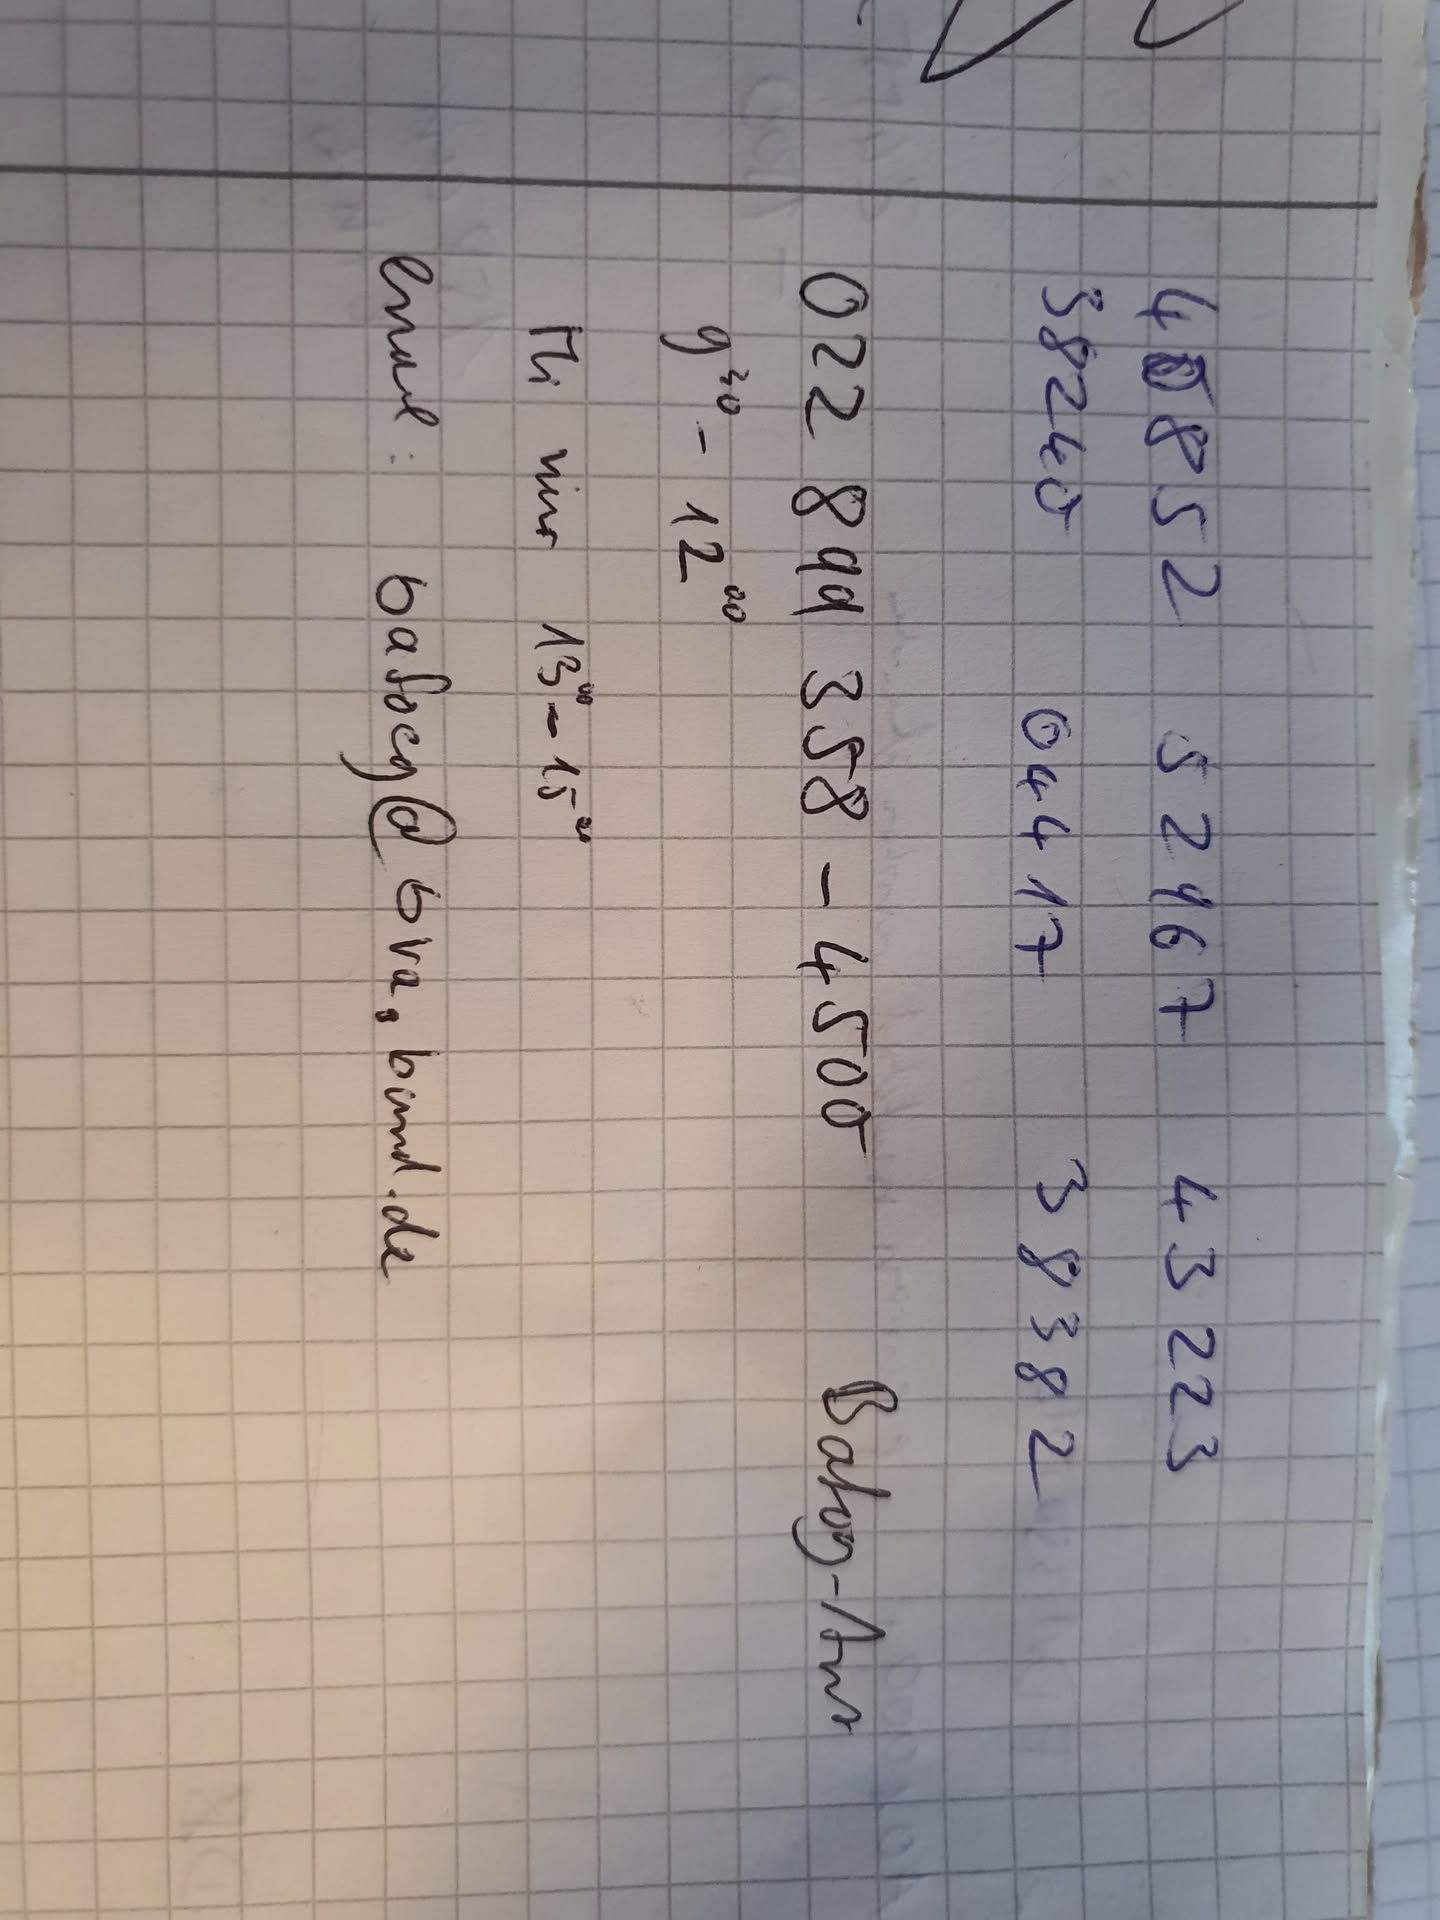 40852 52967 43223
38240 04417 38382
022 899 358 - 4500 Bafög-Amt
9³⁰ - 12⁰⁰
Mi nur 13⁰⁰ - 15⁰⁰
email: bafoeg@bva.bund.de